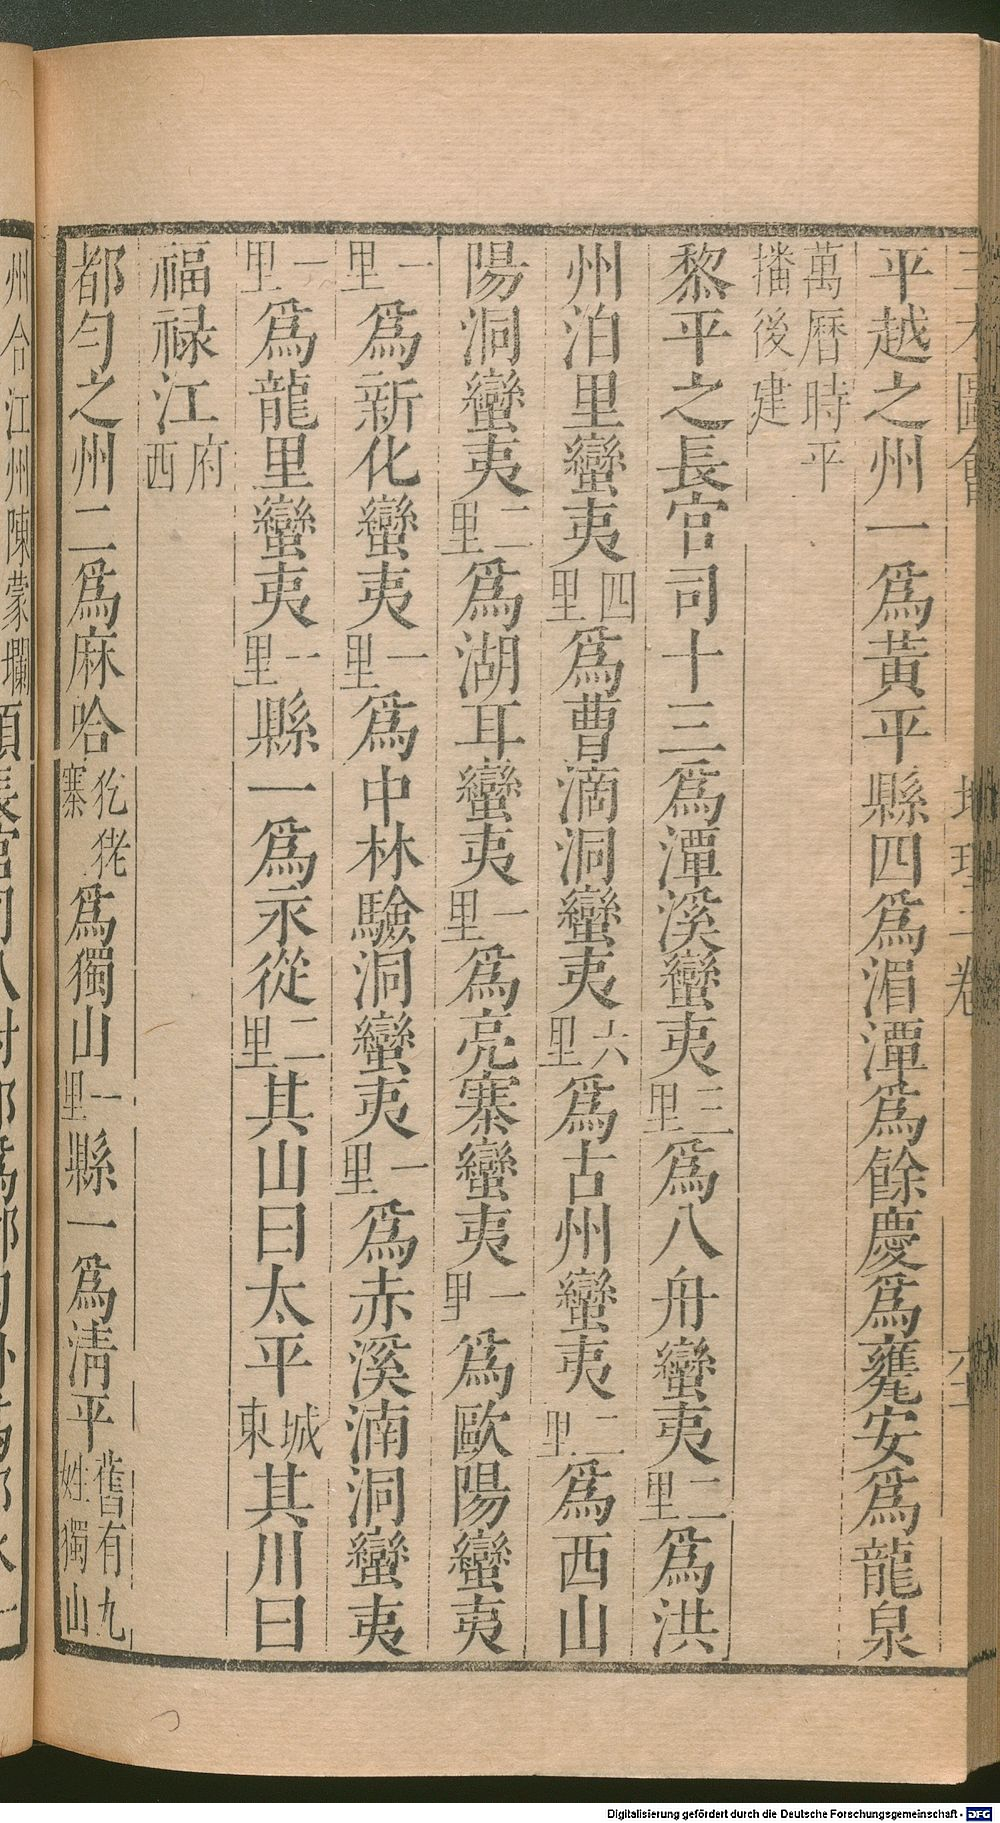 平越之州一爲黃平縣四爲湄潭爲餘慶爲甕安爲龍泉
萬曆時平
播後建
黎平之長官司十三爲潭溪蠻夷三里爲八舟蠻夷二里爲洪
州泊里蠻夷四里爲曹滴洞蠻夷六里爲古州蠻夷二里爲西山
陽洞蠻夷二里爲湖耳蠻夷一里爲亮寨蠻夷一里爲歐陽蠻夷
一里爲新化蠻夷一里爲中林驗洞蠻夷一里爲赤溪湳洞蠻夷
一里爲龍里蠻夷一里縣一爲永從二里其山曰太平城東其川曰
福禄江府西
都勻之州二爲麻哈犵狫寨爲獨山一里縣一爲清平舊有九姓獨山
州合江州陳蒙爛
Digitalisierung gefördert durch die Deutsche Forschungsgemeinschaft - DFG